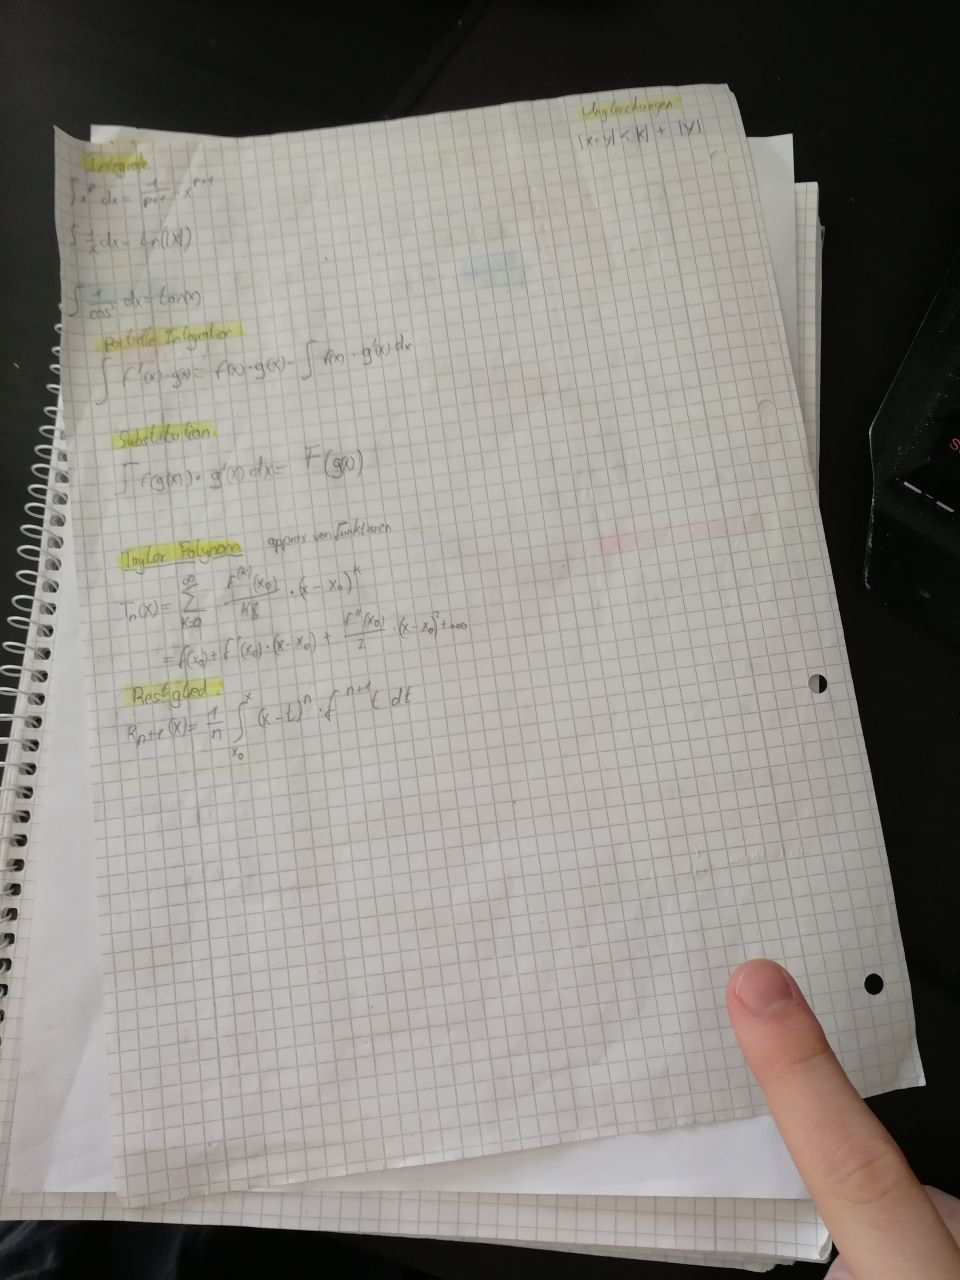 Ungleichungen
|x+y| < |x| + |y|
Integrale
∫ x^p dx = 1/(p+1) · x^(p+1)
∫ 1/x dx = ln(|x|)
∫ 1/cos² dx = tan(x)
partielle Integration
∫ f'(x) · g(x) = f(x) · g(x) - ∫ f(x) · g'(x) dx
Substitution
∫ f(g(x)) · g'(x) dx = F(g(x))
Taylor Polynom approx von Funktionen
Tn(x) = ∑_{k=0}^{∞} f^(k)(x₀)/k! · (x - x₀)^k
= f(x₀) + f'(x₀) · (x - x₀) + f''(x₀)/2 · (x - x₀)² + ...
Restglied
R_{n+1}(x) = 1/n ∫_{x₀}^{x} (x - t)^n · f^{n+1} t dt